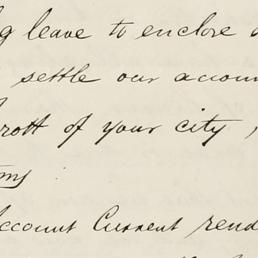 leave to enclose
settle our accoun
rott of your city,
Account Current rend